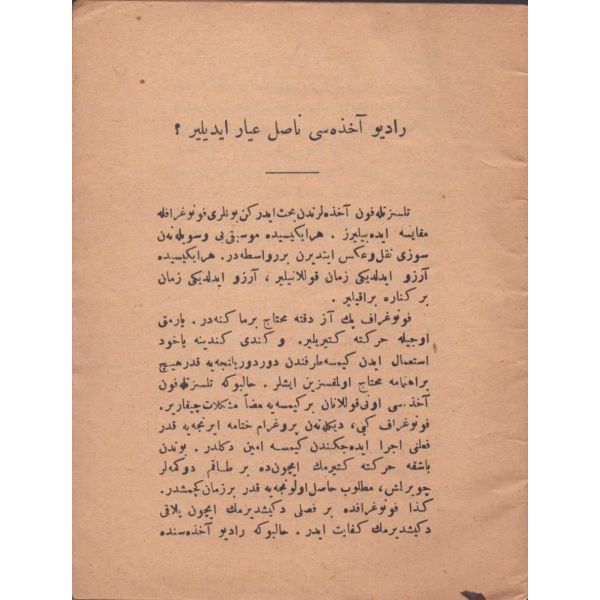 رادیو آخذه‌سی ناصل عیار ایدیلیر ؟
تلسز تله‌فون آخذه‌لرندن بحث ایدرکن بونلری فونوغرافله
مقایسه ایده‌بیلیرز . هر ایکیسیده موسیقی‌یی و سویله‌نه‌ن
سوزی نقل و عکس ایتدیرن بر واسطه‌در . هر ایکیسیده
آرزو ایدلدیکی زمان قوللانیلیر ، آرزو ایدلدیکی زمان
بر کناره براقیلیر .
فونوغراف پك آز دقته محتاج بر ماکنه‌در . پارمق
اوجیله حرکته کتیریلیر . و کندی کندینه یاخود
استعمال ایدن کیمسه طرفندن دوردورولنجه‌یه قدر هیچ
بر اهتمامه محتاج اولمقسزین ایشلر . حالبوکه تلسز تله‌فون
آخذه‌سی اونی قوللانان بر کیمسه‌یه بعضاً مشکلات چیقاریر.
فونوغراف کبی، دیکله‌نه‌ن پروغرام ختامه ایرنجه‌یه قدر
فعلنی اجرا ایده‌جکندن کیمسه امین دکلدر . بوندن
باشقه حرکته کتیرمك ایچون‌ده بر طاقم دوکمه‌لر
چویرلش، مطلوب حاصل اولونجه‌یه قدر بر زمان کچمشدر.
کذا فونوغرافده بر فصلی دکیشدیرمك ایچون پلاقی
دکیشدیرمك کفایت ایدر . حالبوکه رادیو آخذه‌سنده